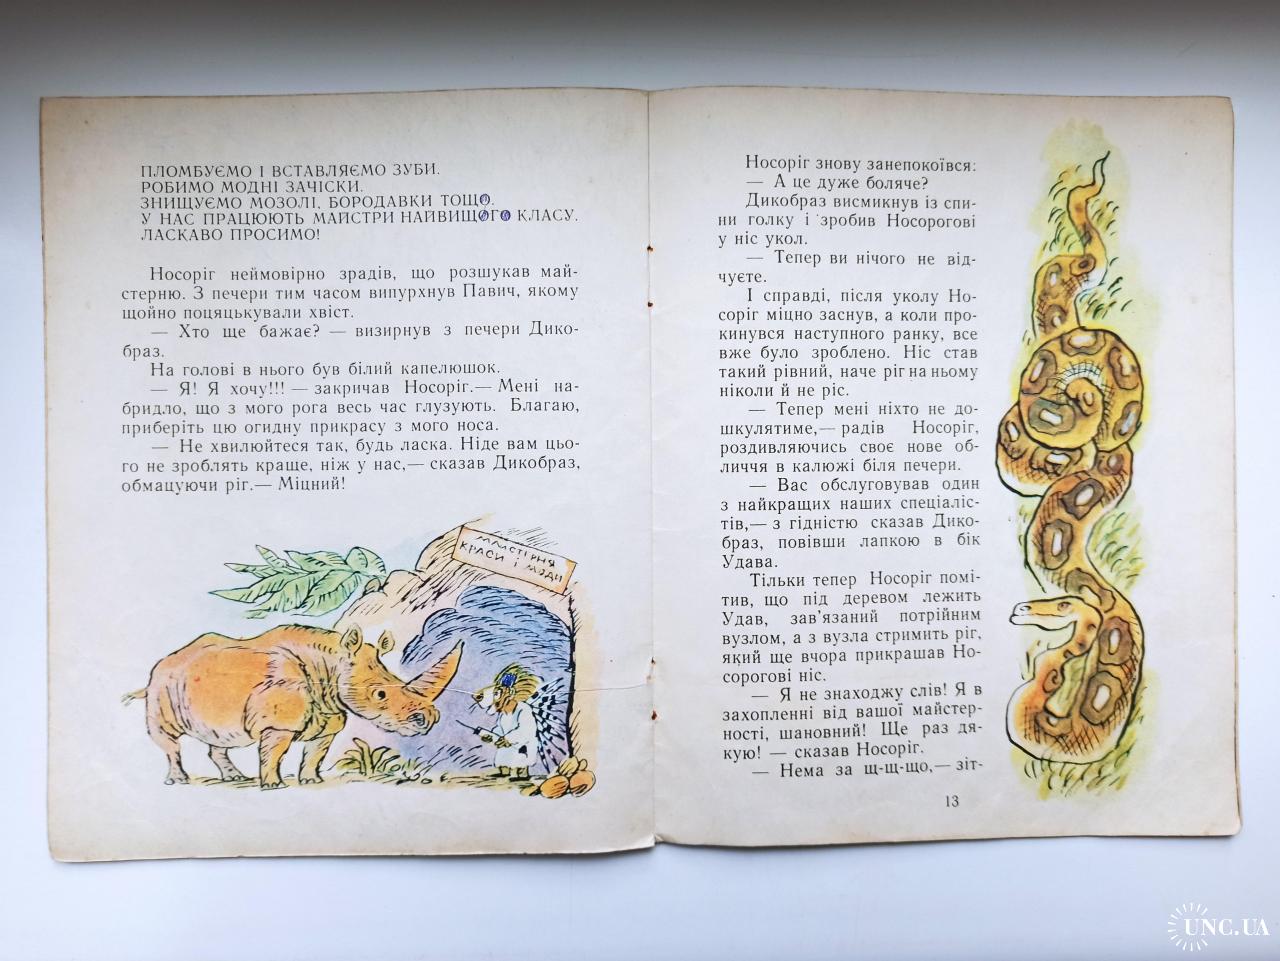 ПЛОМБУЄМО І ВСТАВЛЯЄМО ЗУБИ.
РОБИМО МОДНІ ЗАЧІСКИ.
ЗНИЩУЄМО МОЗОЛІ, БОРОДАВКИ ТОЩО.
У НАС ПРАЦЮЮТЬ МАЙСТРИ НАЙВИЩОГО КЛАСУ.
ЛАСКАВО ПРОСИМО!
Носоріг неймовірно зрадів, що розшукав май-
стерню. З печери тим часом випурхнув Павич, якому
щойно поцяцькували хвіст.
— Хто ще бажає? — визирнув з печери Дико-
браз.
На голові в нього був білий капелюшок.
— Я! Я хочу!!! — закричав Носоріг.— Мені на-
бридло, що з мого рога весь час глузують. Благаю,
приберіть цю огидну прикрасу з мого носа.
— Не хвилюйтеся так, будь ласка. Ніде вам цьо-
го не зроблять краще, ніж у нас,— сказав Дикобраз,
обмацуючи ріг.— Міцний!
МАЙСТЕРНЯ
КРАСИ І МОДИ
Носоріг знову занепокоївся:
— А це дуже боляче?
Дикобраз висмикнув із спи-
ни голку і зробив Носорогові
у ніс укол.
— Тепер ви нічого не від-
чуєте.
І справді, після уколу Но-
соріг міцно заснув, а коли про-
кинувся наступного ранку, все
вже було зроблено. Ніс став
такий рівний, наче ріг на ньому
ніколи й не ріс.
— Тепер мені ніхто не до-
шкулятиме,— радів Носоріг,
роздивляючись своє нове об-
личчя в калюжі біля печери.
— Вас обслуговував один
з найкращих наших спеціаліс-
тів,— з гідністю сказав Дико-
браз, повівши лапкою в бік
Удава.
Тільки тепер Носоріг помі-
тив, що під деревом лежить
Удав, зав'язаний потрійним
вузлом, а з вузла стримить ріг,
який ще вчора прикрашав Но-
сорогові ніс.
— Я не знаходжу слів! Я в
захопленні від вашої майстер-
ності, шановний! Ще раз дя-
кую! — сказав Носоріг.
— Нема за щ-щ-що,— зіт-
13
UNC.UA